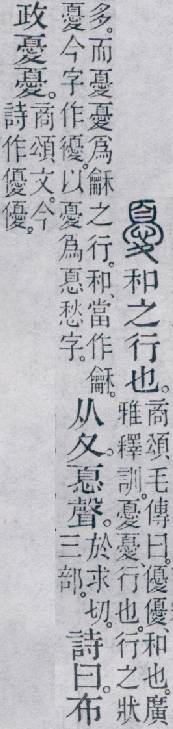 憂和之行也。
商頌。毛傳曰。優優、和也。廣
雅釋訓。憂憂、行也。行之狀
多。而憂憂爲龢之行。和、當作龢。
憂今字作優。以憂爲𢝊愁字。
从夊。𢝊聲。
於求切。
三部。
詩曰。布
政憂憂。
商頌文。今
詩作優優。